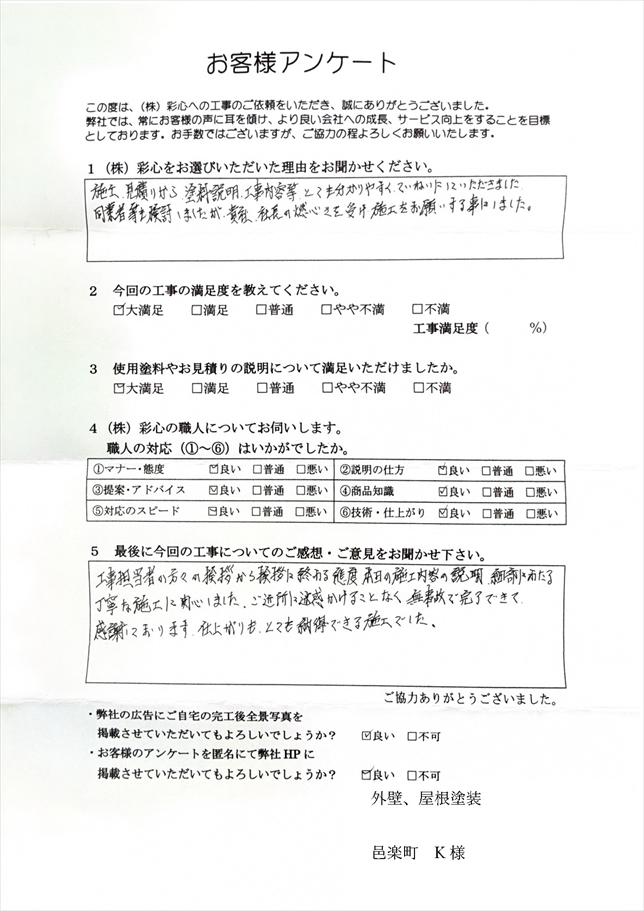 お客様アンケート
この度は、（株）彩心への工事のご依頼をいただき、誠にありがとうございました。
弊社では、常にお客様の声に耳を傾け、より良い会社への成長、サービス向上をすることを目標
としております。お手数ではございますが、ご協力の程よろしくお願いいたします。
1（株）彩心をお選びいただいた理由をお聞かせください。
施工、見積りから、塗料説明、工事内容等とても分かりやすく、ていねいにしていただきました。
同業者等も検討しましたが、貴社、社長の燃心さを受け施工をお願いする事にしました。
2　今回の工事の満足度を教えてください。
☑大満足　□満足　□普通　□やや不満　□不満
工事満足度（　　　%）
3　使用塗料やお見積りの説明について満足いただけましたか。
☑大満足　□満足　□普通　□やや不満　□不満
4（株）彩心の職人についてお伺いします。
職人の対応（①～⑥）はいかがでしたか。
①マナー・態度　☑良い　□普通　□悪い　②説明の仕方　☑良い　□普通　□悪い
③提案・アドバイス　☑良い　□普通　□悪い　④商品知識　☑良い　□普通　□悪い
⑤対応のスピード　☑良い　□普通　□悪い　⑥技術・仕上がり　☑良い　□普通　□悪い
5　最後に今回の工事についてのご感想・ご意見をお聞かせ下さい。
工事担当者の方々の挨拶から挨拶に終わる態度、本日の施工内容の説明、細部にわたる
丁寧な施工に関心しました。ご近所に迷惑かけることなく、無事故で完了できて、
感謝しております。仕上がりも、とても納得できる施工でした。
ご協力ありがとうございました。
・弊社の広告にご自宅の完工後全景写真を
掲載させていただいてもよろしいでしょうか？　☑良い　□不可
・お客様のアンケートを匿名にて弊社HPに
掲載させていただいてもよろしいでしょうか？　☑良い　□不可
外壁、屋根塗装
邑楽町　K様